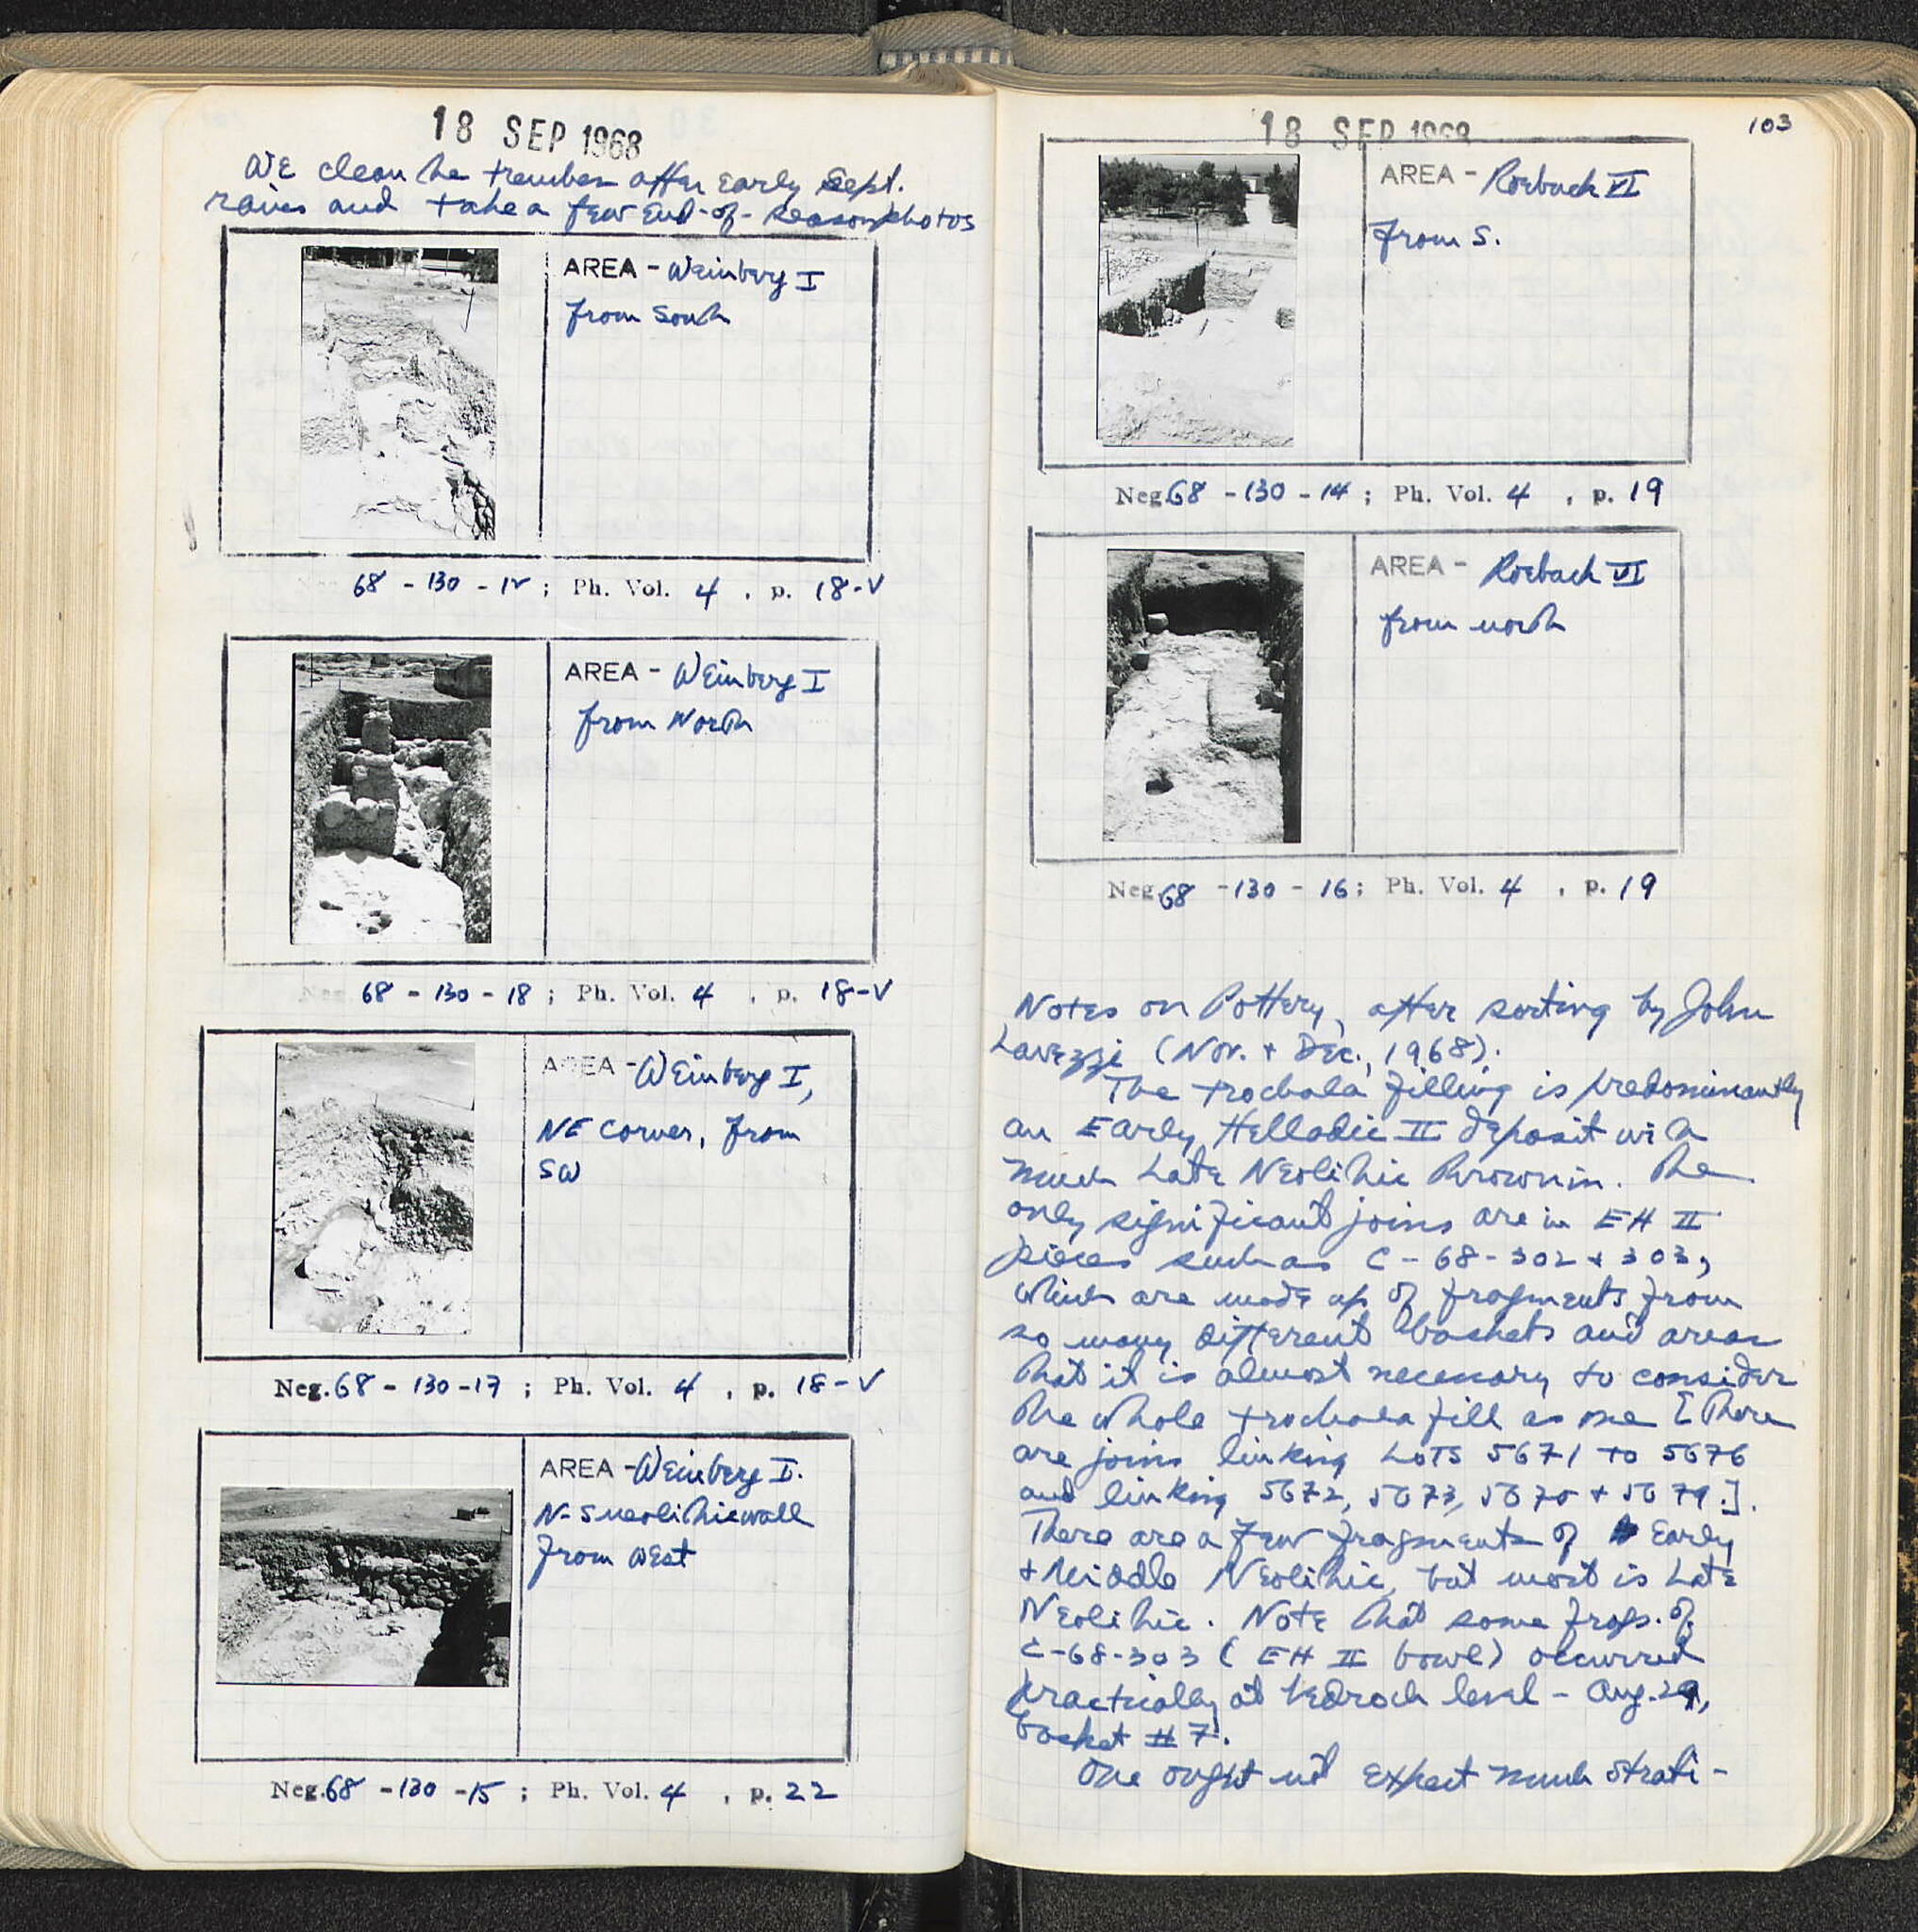 18 SEP 1968
We clean the trenches after early Sept.
rains and take a few End-of-season photos
AREA - Weinberg I
from South
68 - 130 - 12 ; Ph. Vol. 4 , p. 18-V
AREA - Weinberg I
from North
Neg. 68 - 130 - 18 ; Ph. Vol. 4 , p. 18-V
AREA - Weinberg I,
NE corner, from
SW
Neg. 68 - 130 - 17 ; Ph. Vol. 4 , p. 18-V
AREA - Weinberg I.
N-S neolithic wall
from West
Neg. 68 - 130 - 15 ; Ph. Vol. 4 , p. 22
18 SEP 1968
103
AREA - Roebuck VI
from S.
Neg. 68 - 130 - 14 ; Ph. Vol. 4 , p. 19
AREA - Roebuck VI
from north
Neg. 68 - 130 - 16 ; Ph. Vol. 4 , p. 19
Notes on Pottery, after sorting by John
Lavezzi (Nov. + Dec., 1968).
The trochala filling is predominantly
an Early Helladic II deposit with
much Late Neolithic thrown in. The
only significant joins are in EH II
pieces such as C-68-302 + 303,
which are made up of fragments from
so many different baskets and areas
that it is almost necessary to consider
the whole trochala fill as one [There
are joins linking LOTS 5671 to 5676
and linking 5672, 5673, 5675 + 5679.].
There are a few fragments of Early
+ Middle Neolithic, but most is Late
Neolithic. Note that some frags. of
C-68-303 (EH II bowl) occurred
practically at bedrock level - Aug. 29,
basket #7.
One ought not expect much strati-